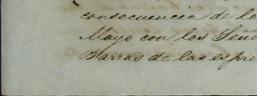 consecuencia de la
Mayo con los Seño
Barras de las espre